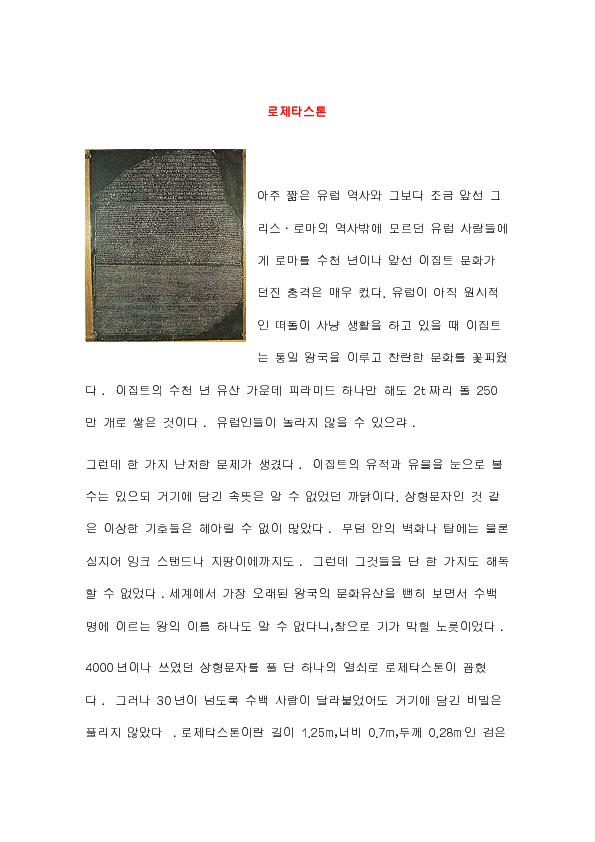 로제타스톤
아주 짧은 유럽 역사와 그보다 조금 앞선 그
리스·로마의 역사밖에 모르던 유럽 사람들에
게 로마를 수천 년이나 앞선 이집트 문화가
던진 충격은 매우 컸다. 유럽이 아직 원시적
인 떠돌이 사냥 생활을 하고 있을 때 이집트
는 통일 왕국을 이루고 찬란한 문화를 꽃피웠
다. 이집트의 수천 년 유산 가운데 피라미드 하나만 해도 2t짜리 돌 250
만 개로 쌓은 것이다. 유럽인들이 놀라지 않을 수 있으랴.
그런데 한 가지 난처한 문제가 생겼다. 이집트의 유적과 유물을 눈으로 볼
수는 있으되 거기에 담긴 속뜻은 알 수 없었던 까닭이다. 상형문자인 것 같
은 이상한 기호들은 헤아릴 수 없이 많았다. 무덤 안의 벽화나 탑에는 물론
심지어 잉크 스탠드나 지팡이에까지도. 그런데 그것들을 단 한 가지도 해독
할 수 없었다. 세계에서 가장 오래된 왕국의 문화유산을 뻔히 보면서 수백
명에 이르는 왕의 이름 하나도 알 수 없다니,참으로 기가 막힐 노릇이었다.
4000년이나 쓰였던 상형문자를 풀 단 하나의 열쇠로 로제타스톤이 꼽혔
다. 그러나 30년이 넘도록 수백 사람이 달라붙었어도 거기에 담긴 비밀은
풀리지 않았다 .로제타스톤이란 길이 1.25m,너비 0.7m,두께 0.28m인 검은